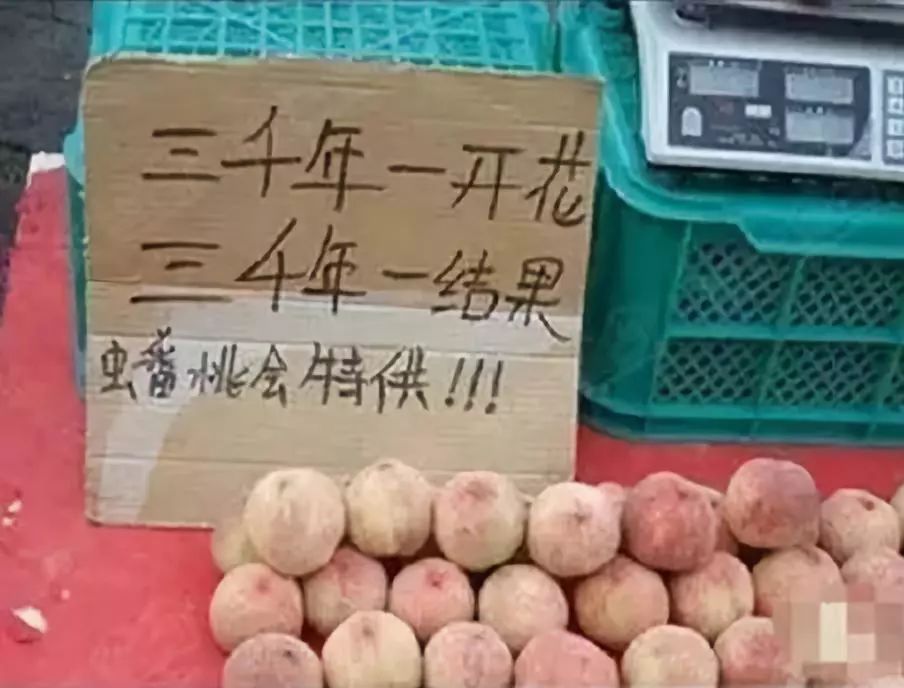 三千年一开花
三千年一结果
蟠桃会特供!!!